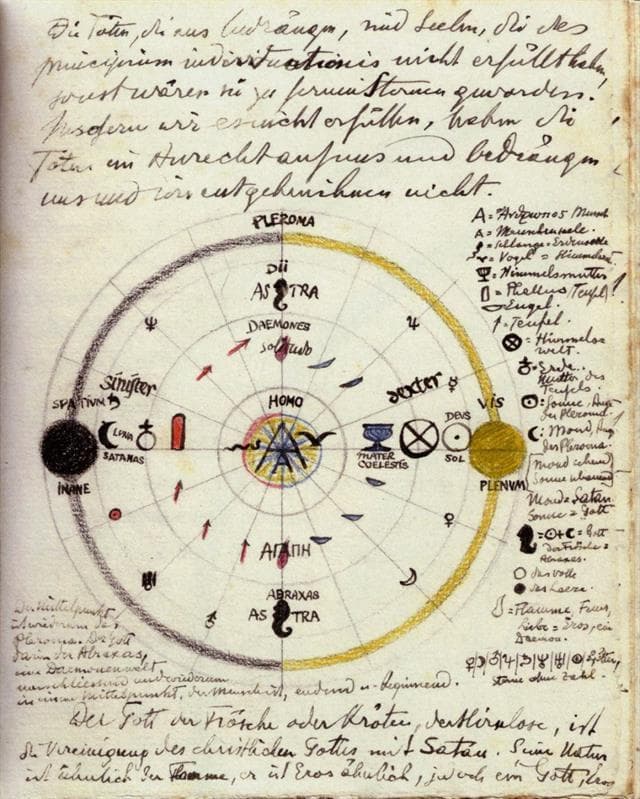 Die Toten, die uns bedrängen, sind Seelen, die das
principium individuationis nicht erfüllt haben,
sonst wären sie zu fernen Sternen geworden.
Insofern wir es nicht erfüllen, haben die
Toten ein Anrecht auf uns und bedrängen
uns und wir entgehen ihnen nicht.
PLEROMA
DII
ASTRA
DAEMONES
Solitudo
sinister
dexter
HOMO
SPATIUM
VIS
LUNA
SATANAS
MATER
COELESTIS
DEUS
SOL
INANE
PLENUM
A
ΑΓΑΠΗ
ABRAXAS
ASTRA
A = Ἄνθρωπος Mensch
A = Menschenseele.
= Schlange = Erdenseele
= Vogel = Himmelsseele
= Himmelsmutter
= Phallus (Teufel)
= Engel.
= Teufel.
= Himmels
welt.
= Erde.
Mutter des
Teufels
: Sonne, Auge
des Pleroma.
: Mond, Auge
des Pleroma.
Mond
Sonne
Mond = Satan
Sonne = Gott
= Gott
der Frösche =
Abraxas.
das volle
das leere.
= Flamme, Feuer,
Liebe = Eros, ein
Daemon.
Götter,
Sterne ohne Zahl.
Der Mittelpunkt
ist wiederum das
Pleroma. Der Gott
darin der Abraxas,
eine Daemonenwelt
und wiederum
in einem Mittelpunkt, der Mensch ist, endend u. beginnend.
Der Gott der Frösche oder Kröten, der Hirnlose, ist
die Vereinigung des christlichen Gottes mit Satan. Seine Natur
ist ähnlich der Flamme, er ist Eros ähnlich, jedoch ein Gott, Eros